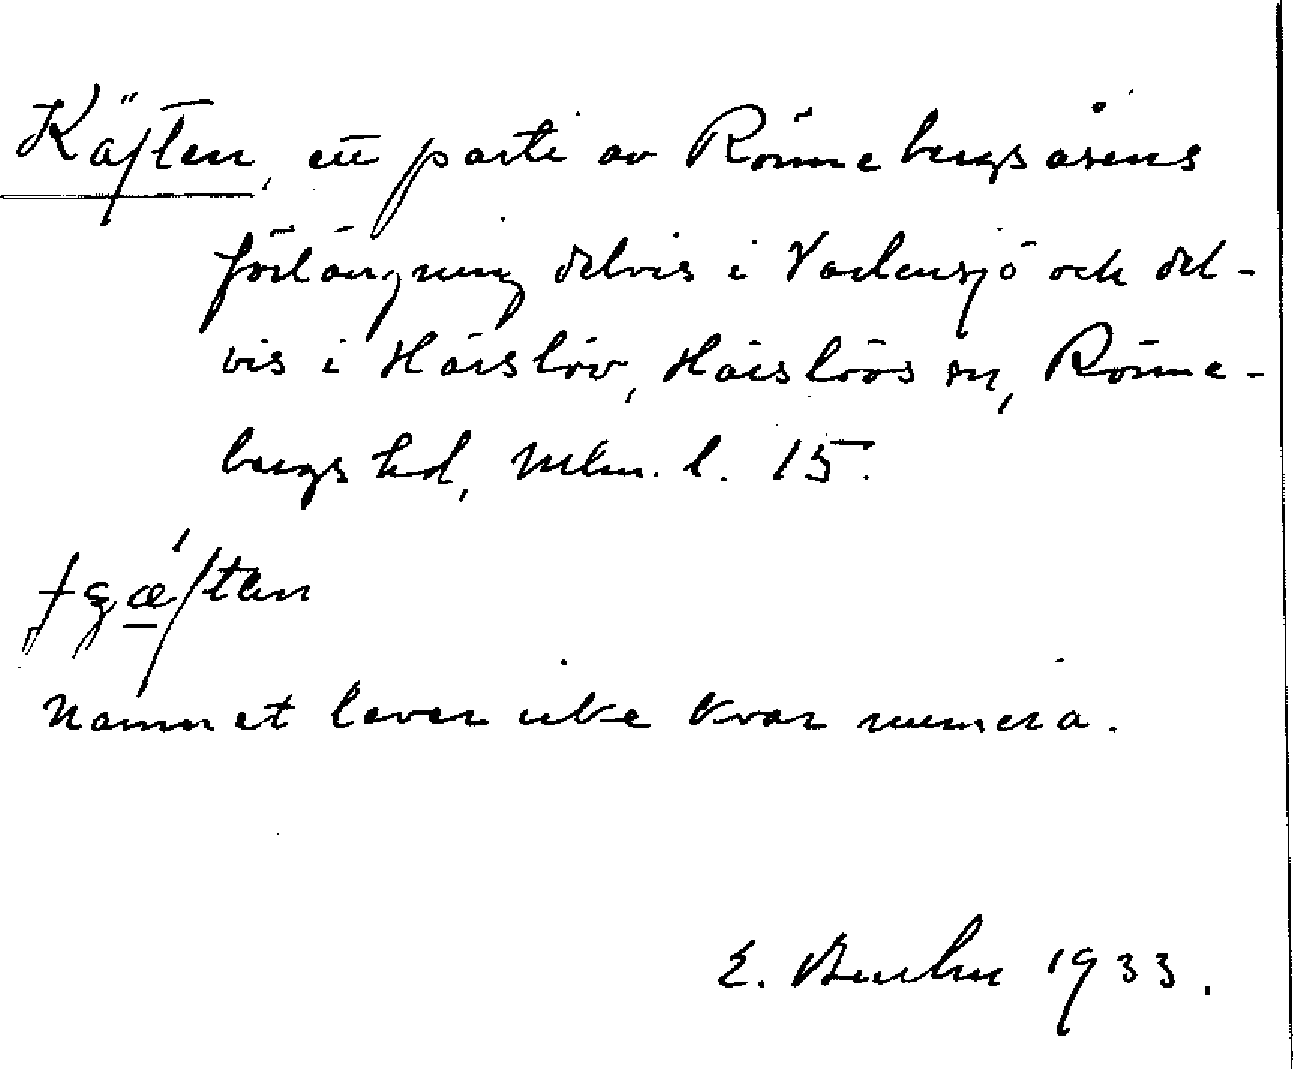 Käften, ett parti av Rönnebergsåsens
förlängning delvis i Vadensjö och del-
vis i Härslöv, Härslövs sn, Rönne-
bergs hd, Mlm. l. 15.
Namnet lever icke kvar numera.
E. 1933.